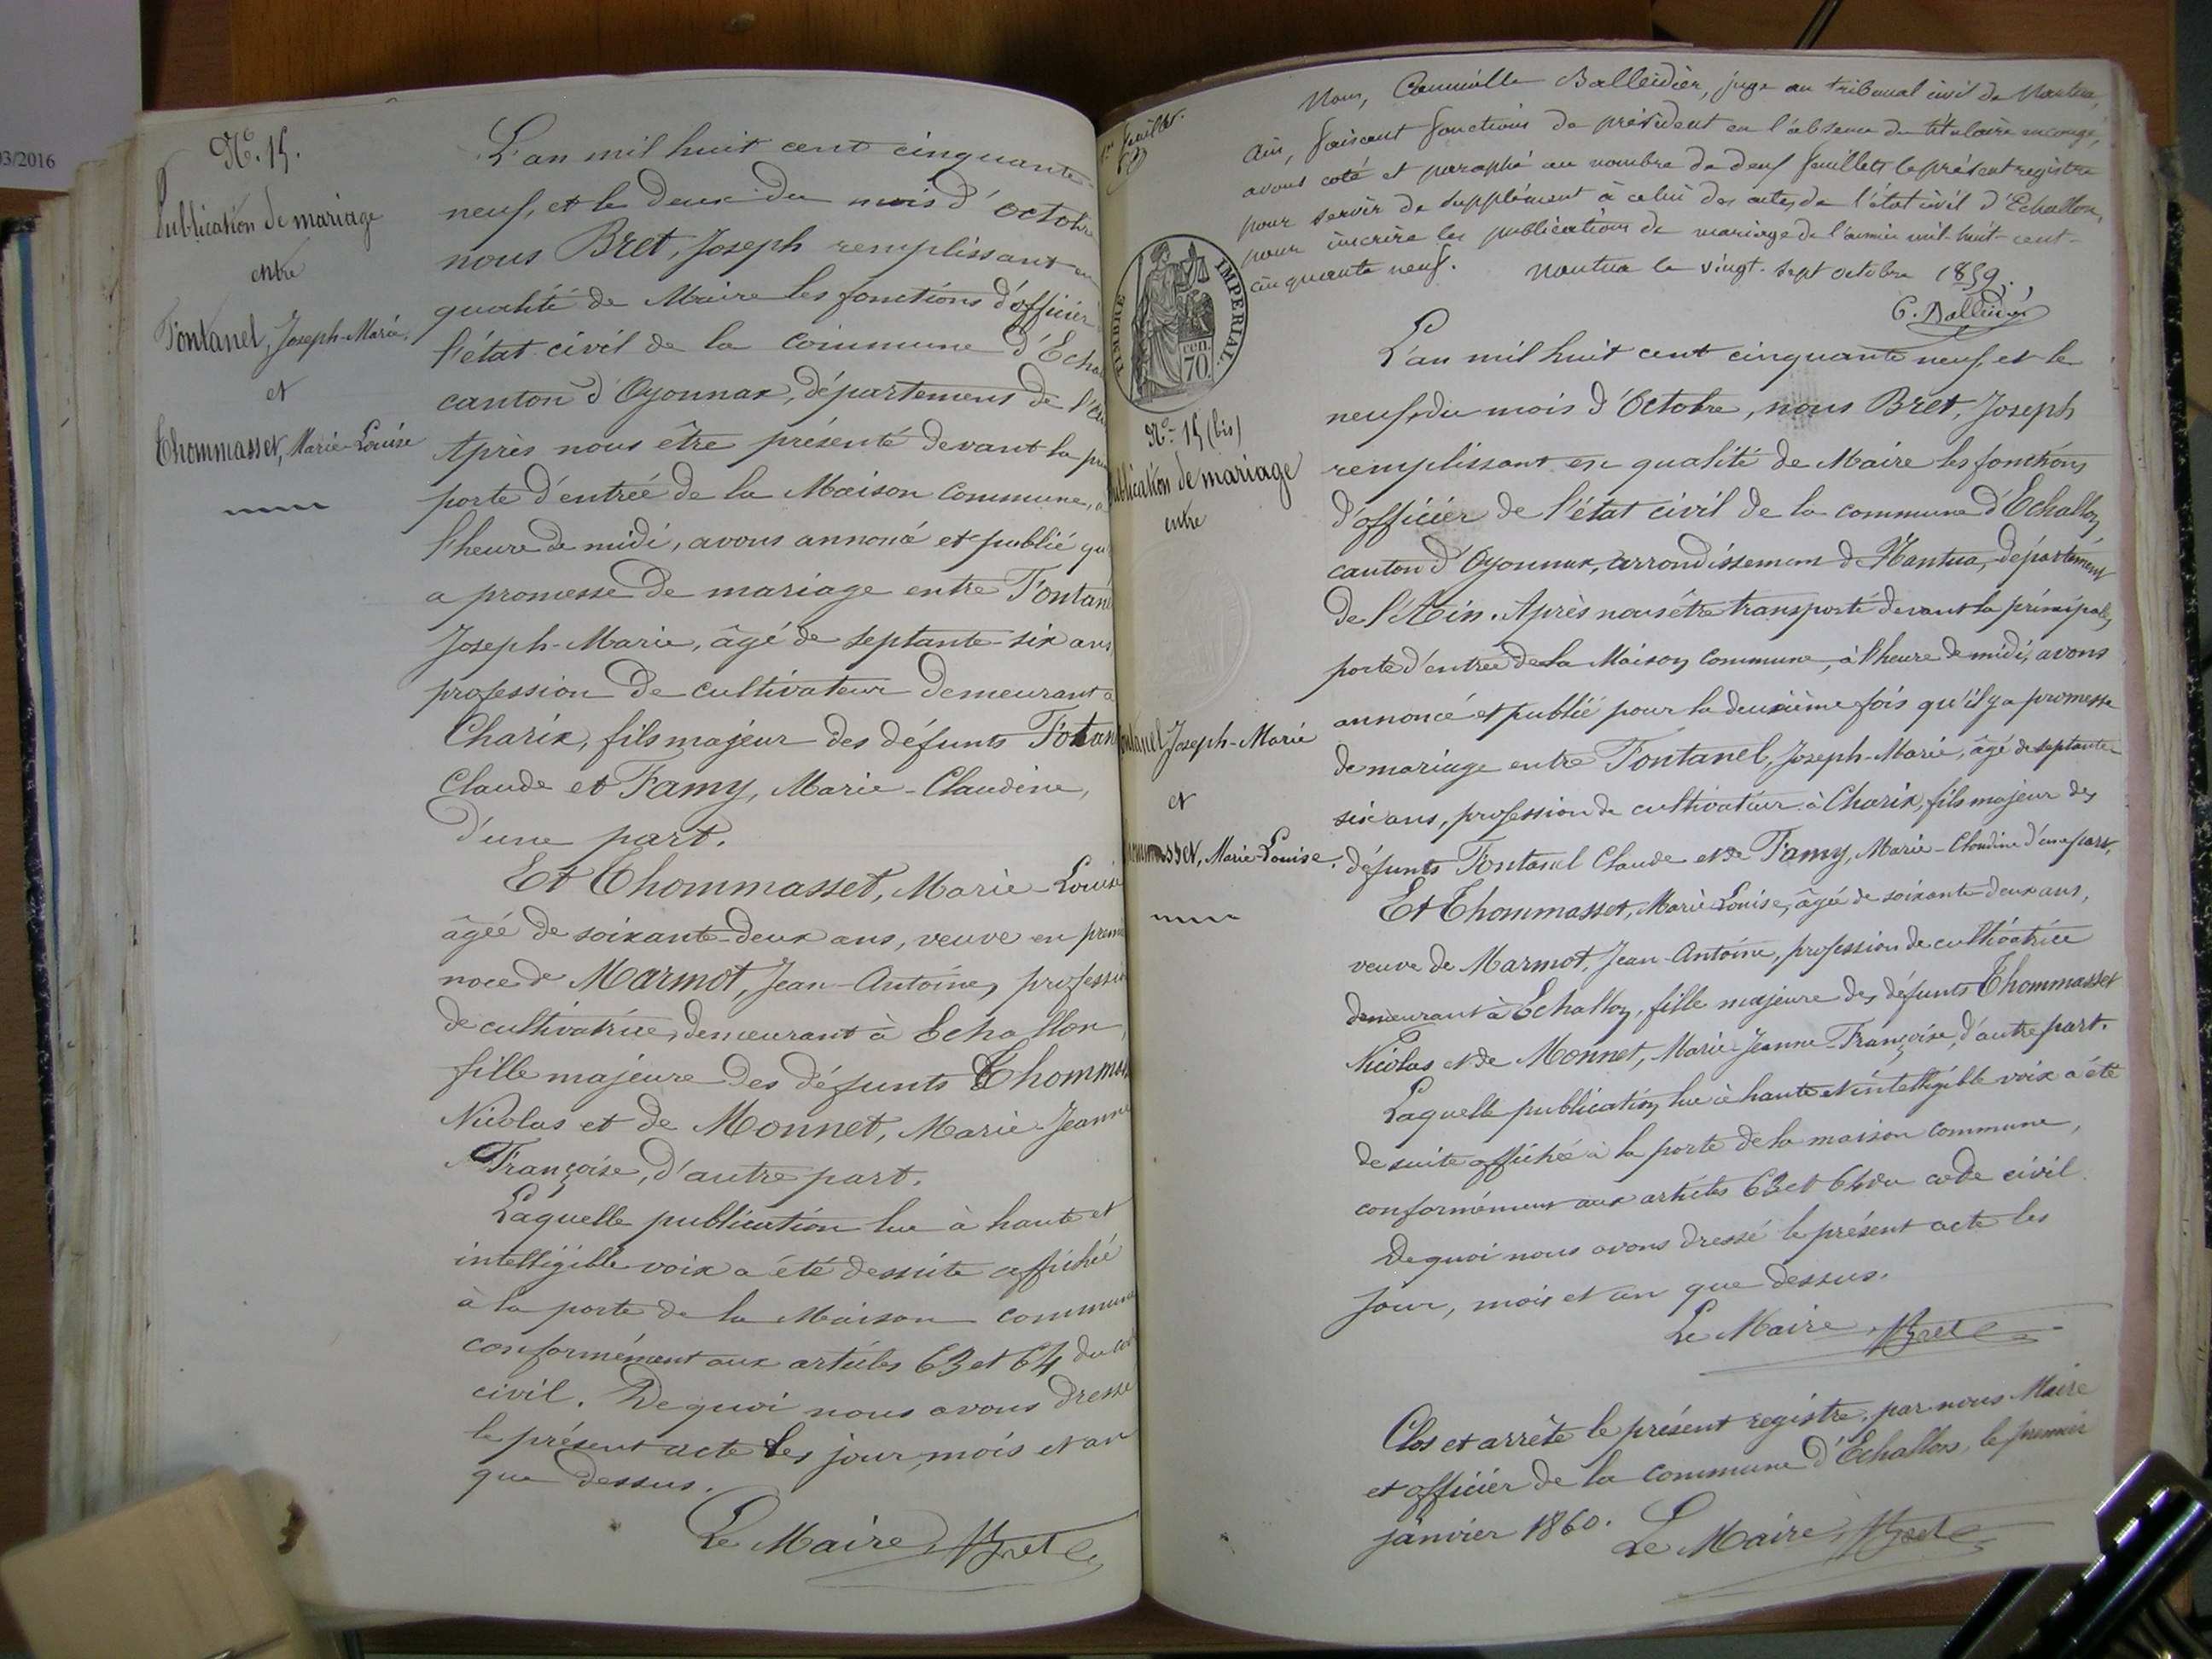 03/2016
N° 15.
Publication de mariage
entre
Fontanel, Joseph-Marie,
et
Thommasset, Marie-Louise
L'an mil huit cent cinquante-
neuf, et le deux du mois d'octobre
nous Bret, Joseph remplissant en
qualité de Maire les fonctions d'officier
l'état civil de la commune d'Echa
canton d'Oyonnax, département de l'Ain
Après nous être présenté devant la prin
porte d'entrée de la Maison Commune, à
l'heure de midi, avons annoncé et publié qu
a promesse de mariage entre Fontane
Joseph-Marie, âgé de septante-six ans
profession de cultivateur demeurant à
Charix, fils majeur des défunts Fotan
Claude et Famy, Marie-Claudine,
d'une part.
Et Thommasset, Marie-Louise
âgée de soixante-deux ans, veuve en premi
noce de Marmot, Jean-Antoine, professio
de cultivatrice, demeurant à Echallon,
fille majeure des défunts Thommas
Nicolas et de Monnet, Marie-Jeanne
Françoise, d'autre part.
Laquelle publication lue à haute et
intelligible voix a été dessuite affichée
à la porte de la Maison commune
conformément aux articles 63 et 64 du co
civil. De quoi nous avons dressé
le présent acte les jour, mois et an
que dessus.
Le Maire, Bret
feuillet.
Nous, Camille Balleidier, juge au tribunal civil de Nantua,
Ain, faisant fonctions de président en l'absence du titulaire en congé,
avons coté et paraphé au nombre de deux feuillets le présent registre
pour servir de supplément à celui des actes de l'état civil d'Echallon,
pour inscrire les publications de mariage de l'année mil-huit-cent-
cinquante neuf. Nantua le vingt-sept octobre 1859.
C. Balleidier
TIMBRE IMPERIAL.
70 cen.
N° 15 (bis)
ublication de mariage
entre
ontanel Joseph-Marie
et
ommasset, Marie-Louise.
L'an mil huit cent cinquante neuf, et le
neuf, du mois d'Octobre, nous Bret, Joseph
remplissant en qualité de Maire les fonctions
d'officier de l'état civil de la commune d'Echallon,
canton d'Oyonnax, arrondissement de Nantua, département
de l'Ain. Après nous être transporté devant la principale
porte d'entrée de la Maison commune, à l'heure de midi, avons
annoncé et publié pour la deuxième fois qu'il y a promesse
de mariage entre Fontanel, Joseph-Marie, âgé de septante-
six ans, profession de cultivateur à Charix, fils majeur des
défunts Fontanel Claude et de Famy, Marie-Claudine d'une part,
Et Thommasset, Marie-Louise, âgée de soixante-deux ans,
veuve de Marmot, Jean-Antoine, profession de cultivatrice
demeurant à Echallon, fille majeure des défunts Thommasset
Nicolas et de Monnet, Marie-Jeanne-Françoise, d'autre part.
Laquelle publication, lue à haute et intelligible voix a été
de suite affichée à la porte de la maison commune,
conformément aux articles 63 et 64 du code civil.
De quoi nous avons dressé le présent acte les
jour, mois et an que dessus.
Le Maire, Bret
Clos et arrêté le présent registre, par nous Maire
et officier de la commune d'Echallon, le premier
janvier 1860. Le Maire, Bret